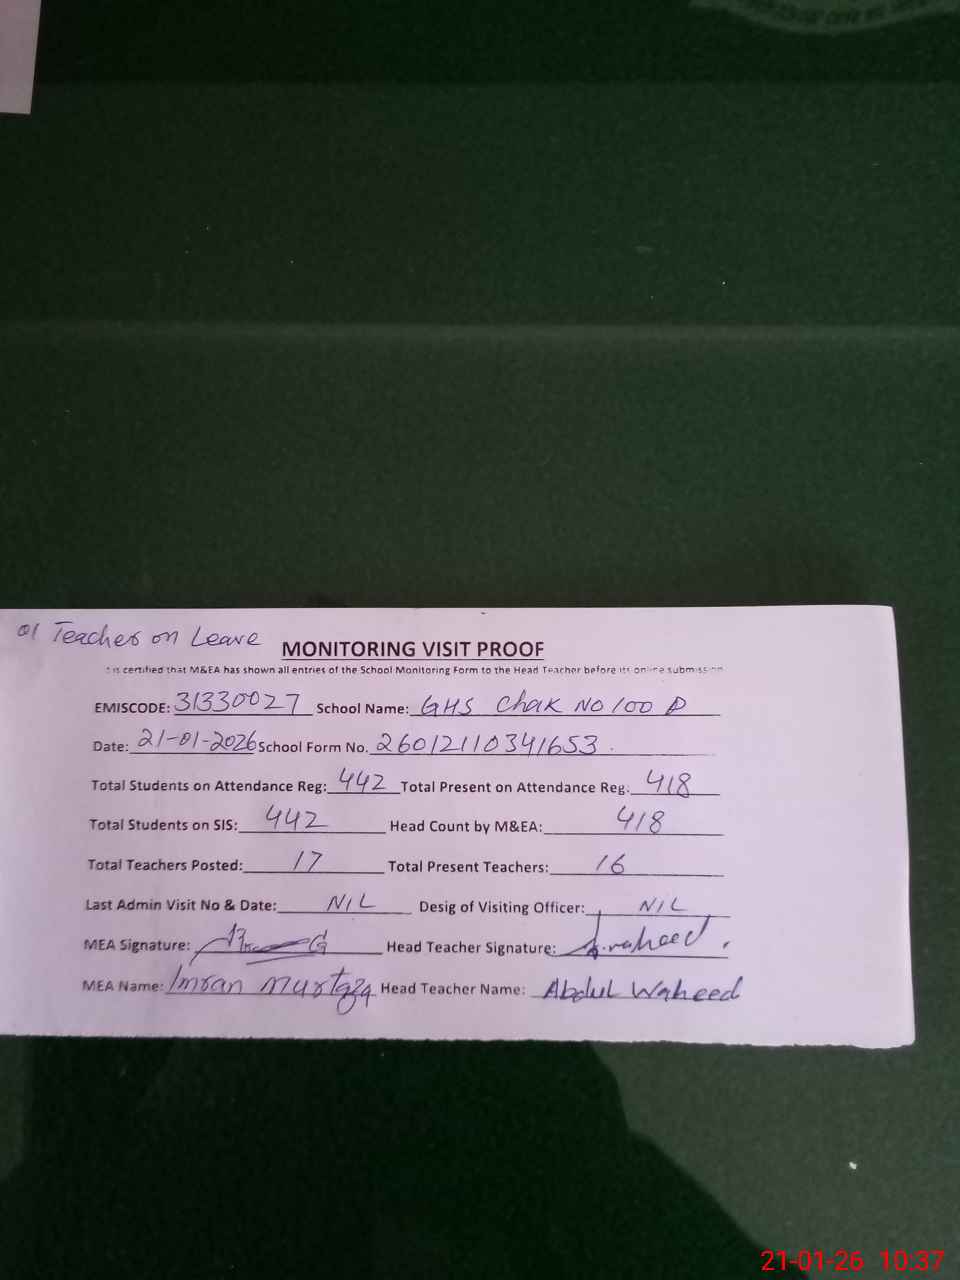 01 Teacher on Leave
MONITORING VISIT PROOF
It is certified that M&EA has shown all entries of the School Monitoring Form to the Head Teacher before its online submission
EMISCODE: 31330027 School Name: GHS Chak NO 100 P
Date: 21-01-2026 School Form No. 26012110341653.
Total Students on Attendance Reg: 442 Total Present on Attendance Reg. 418
Total Students on SIS: 442 Head Count by M&EA: 418
Total Teachers Posted: 17 Total Present Teachers: 16
Last Admin Visit No & Date: NIL Desig of Visiting Officer: NIL
MEA Signature: Head Teacher Signature: A.waheed.
MEA Name: Imran Murtaza Head Teacher Name: Abdul Waheed
21-01-26 10:37